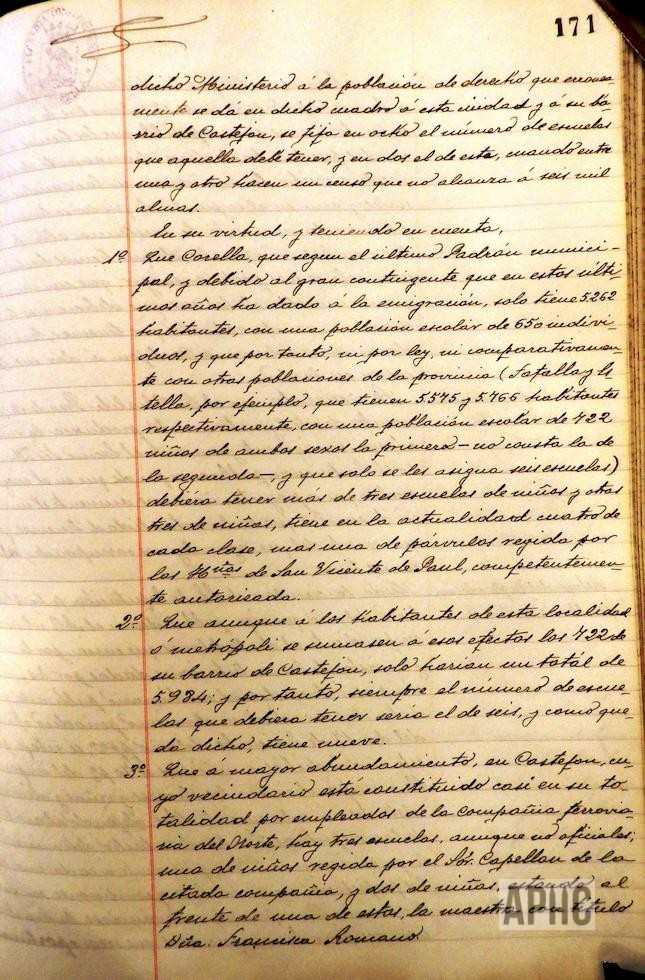 171
dicho Ministerio á la población de derecho que erronea
mente se dá en dicho cuadro á esta ciudad y á su ba-
rrio de Castejon, se fija en ocho el número de escuelas
que aquella debe tener, y en dos el de este, cuando entre
una y otro hacen un censo que no alcanza á seis mil
almas.
En su virtud, y teniendo en cuenta,
1º Que Corella, que segun el último Padrón munici-
pal, y debido al gran contingente que en estos últi-
mos años ha dado á la emigración, solo tiene 5.262
habitantes, con una población escolar de 650 indivi-
duos, y que por tanto, ni por ley, ni comparativamen-
te con otras poblaciones de la provincia (Tafalla y Es
tella, por ejemplo, que tienen 5.575 y 5.766 habitantes
respectivamente, con una población escolar de 722
niños de ambos sexos la primera - no consta la de
la segunda -, y que solo se les asigna seis escuelas)
debiera tener más de tres escuelas de niños y otras
tres de niñas, tiene en la actualidad cuatro de
cada clase, mas una de párvulos regida por
las Hñas de San Vicente de Paul, competentemen-
te autorizada.
2º Que aunque á los habitantes de esta localidad
ó metrópoli se sumasen á esos efectos los 722 de
su barrio de Castejon, solo harian un total de
5.984; y por tanto, siempre el número de escue-
las que debiera tener seria el de seis, y como que-
da dicho, tiene nueve.
3º Que á mayor abundamiento, en Castejon, cu-
yo vecindario está constituido casi en su to-
talidad por empleados de la compañia ferrovia-
ria del Norte, hay tres escuelas, aunque no oficiales;
una de niños regida por el Sor. Capellan de la
citada compañia, y dos de niñas, estando al
frente de una de estas, la maestra con titulo
Dña. Francisca Romano.
APHC